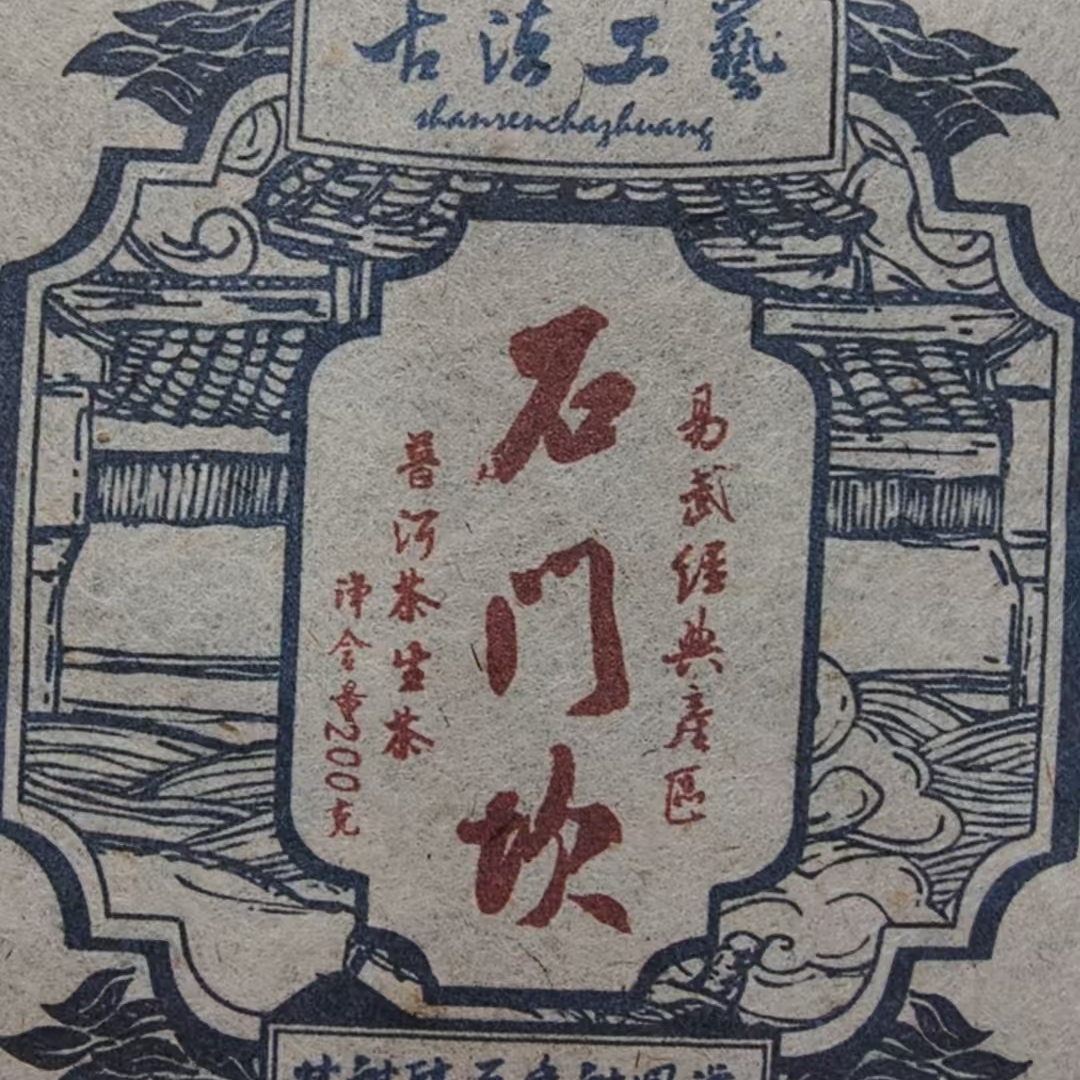 古法工藝
shanrenchazhuang
易武經典產區
石门坎
普洱茶生茶
净含量200克